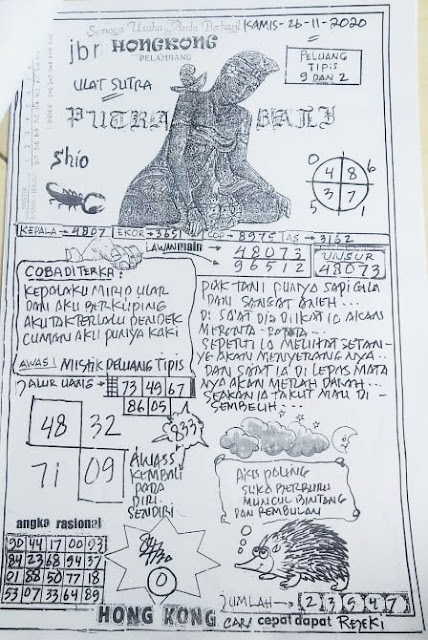 Semoga Usaha Anda Berhasil
KAMIS-26-11-2020
jbr HONGKONG
PELAMBANG
ULAT SUTRA
PELUANG
TIPIS
9 DAN 2
PUTRA BALI
Shio
0 6
4 8
3 7
5 1
KEPALA → 4807 EKOR → 3651 COP → 8975 AS → 3162
LAWAN main → 48073
96512
UNSUR
48073
COBA DITERKA:
KEPALAKU MIRIP ULAR
DAN AKU BERKUPING
AKU TAK TERLALU PENDEK
CUMAN AKU PUNYA KAKI
AWAS! MISTIK PELUANG TIPIS
PAK TANI PUNYA SAPI GILA
DAN SANGAT ANEH...
DI SAAT DIA DI IKAT IA AKAN
MERONTA-RONTA-
SEPERTI IA MELIHAT SETAN-
YG AKAN MENYERANG NYA..
DAN SAAT IA DI LEPAS MATA
NYA AKAN MERAH DARAH...
SEAKAN IA TAKUT MAU DI-
SEMBELIH...
JALUR UANG → 73 49 67
86 05
833
48 32
71 09
AWASS
KEMBALI
PADA
DIRI
SENDIRI
AKU PALING
SUKA BERBURU
MUNCUL BINTANG
DAN REMBULAN
angka rasional
90 44 17 00 03
84 23 68 94 37
01 88 50 77 18
53 07 33 64 89
0
JUMLAH → 2 3 5 4 7
HONG KONG CARI cepat dapat REJEKI